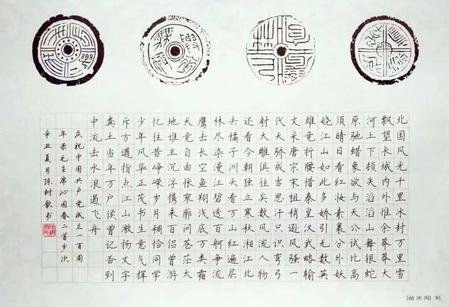 北国风光千里冰封万里雪
飘望长城内外惟余莽莽大
河上下顿失滔滔山舞银蛇
原驰蜡象欲与天公试比高
须晴日看红妆素裹分外妖
娆江山如此多娇引无数英
雄竞折腰惜秦皇汉武略输
文采唐宗宋祖稍逊风骚一
代天骄成吉思汗只识弯弓
射大雕俱往矣数风流人物
还看今朝独立寒秋湘江北
去橘子洲头看万山红遍层
林尽染漫江碧透百舸争流
鹰击长空鱼翔浅底万类霜
天竞自由怅寥廓问苍茫大
地谁主沉浮携来百侣曾游
忆往昔峥嵘岁月稠恰同学
少年风华正茂书生意气挥
斥方遒指点江山激扬文字
粪土当年万户侯曾记否到
中流击水浪遏飞舟
庆祝中国共产党成立一百周
年录毛主席沁园春二首
辛丑夏月陈书